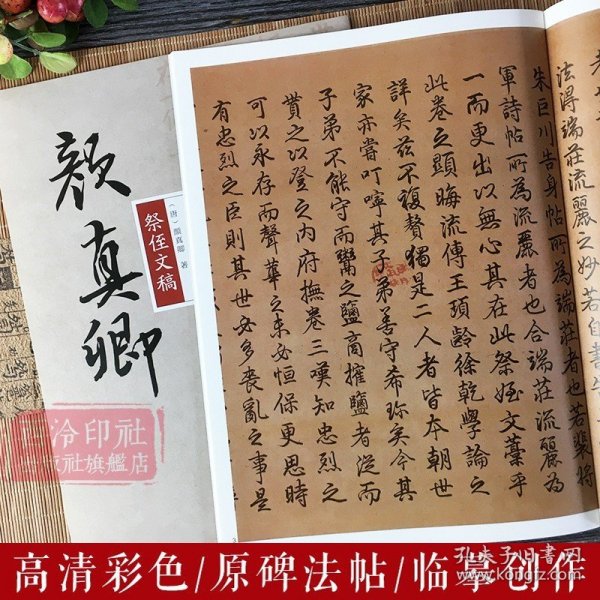 顔真卿
（唐）顔真卿 著
祭侄文稿
法得端莊流麗之妙若
朱巨川告身帖所為端莊者也若裴将
軍詩帖所為流麗者也合端莊流麗為
一而更出以無心其在此祭姪文藁乎
此卷之顕晦流傳王頊齡徐乾學論之
詳矣兹不複贅獨是二人者皆本朝世
家亦嘗叮嚀其子弟善守希珎矣今其
子弟不能守而鬻之鹽商搉鹽者従而
貰之以登之内府撫卷三嘆知忠烈之
可以永存而聲華之未必恒保更思時
有忠烈之臣則其世必多喪亂之事是
西泠印社
出版社旗艦店
高清彩色/原碑法帖/临摹创作
孔夫子旧书网
www.kongfz.com